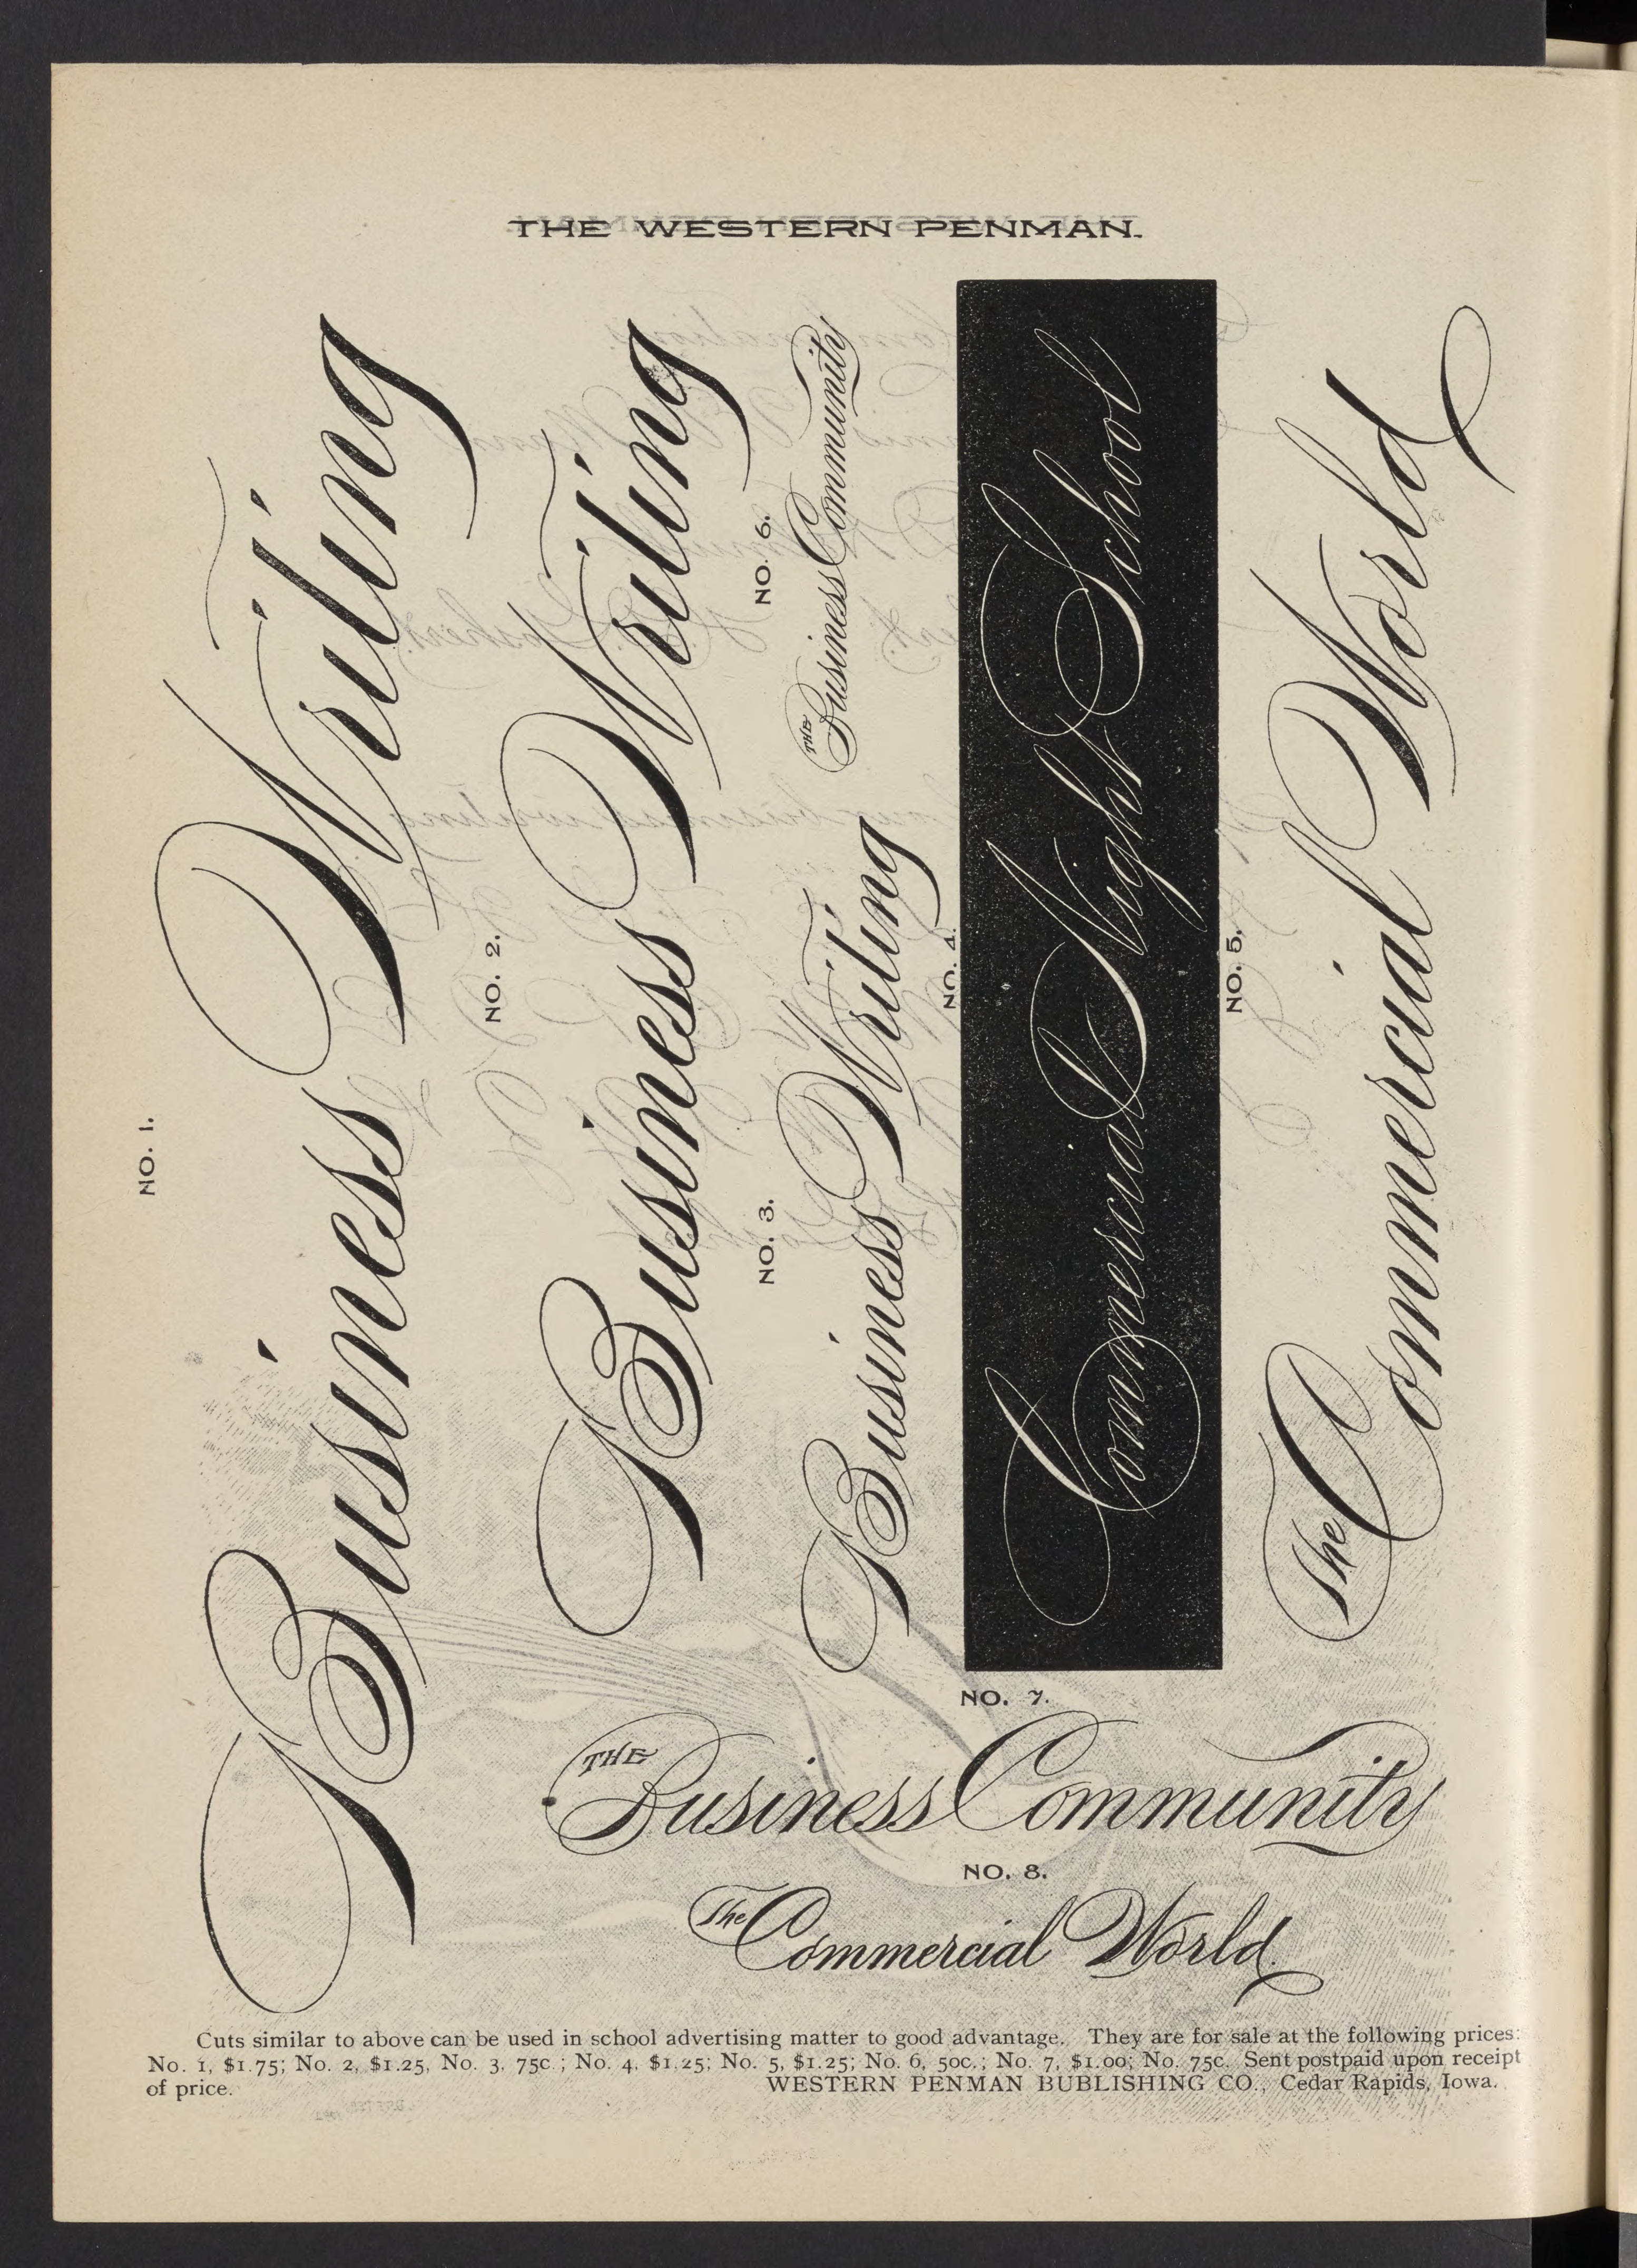 THE WESTERN PENMAN.
NO. 1.
Business Writing
NO. 2.
Business Writing
NO. 3.
Business Writing
NO. 6.
THE Business Community
NO. 4.
Commercial Night School
NO. 5.
The Commercial World
NO. 7.
THE Business Community
NO. 8.
The Commercial World
Cuts similar to above can be used in school advertising matter to good advantage. They are for sale at the following prices:
No. 1, $1.75; No. 2, $1.25, No. 3, 75c.; No. 4, $1.25; No. 5, $1.25; No. 6, 50c.; No. 7, $1.00; No. 75c. Sent postpaid upon receipt
of price. WESTERN PENMAN BUBLISHING CO., Cedar Rapids, Iowa.